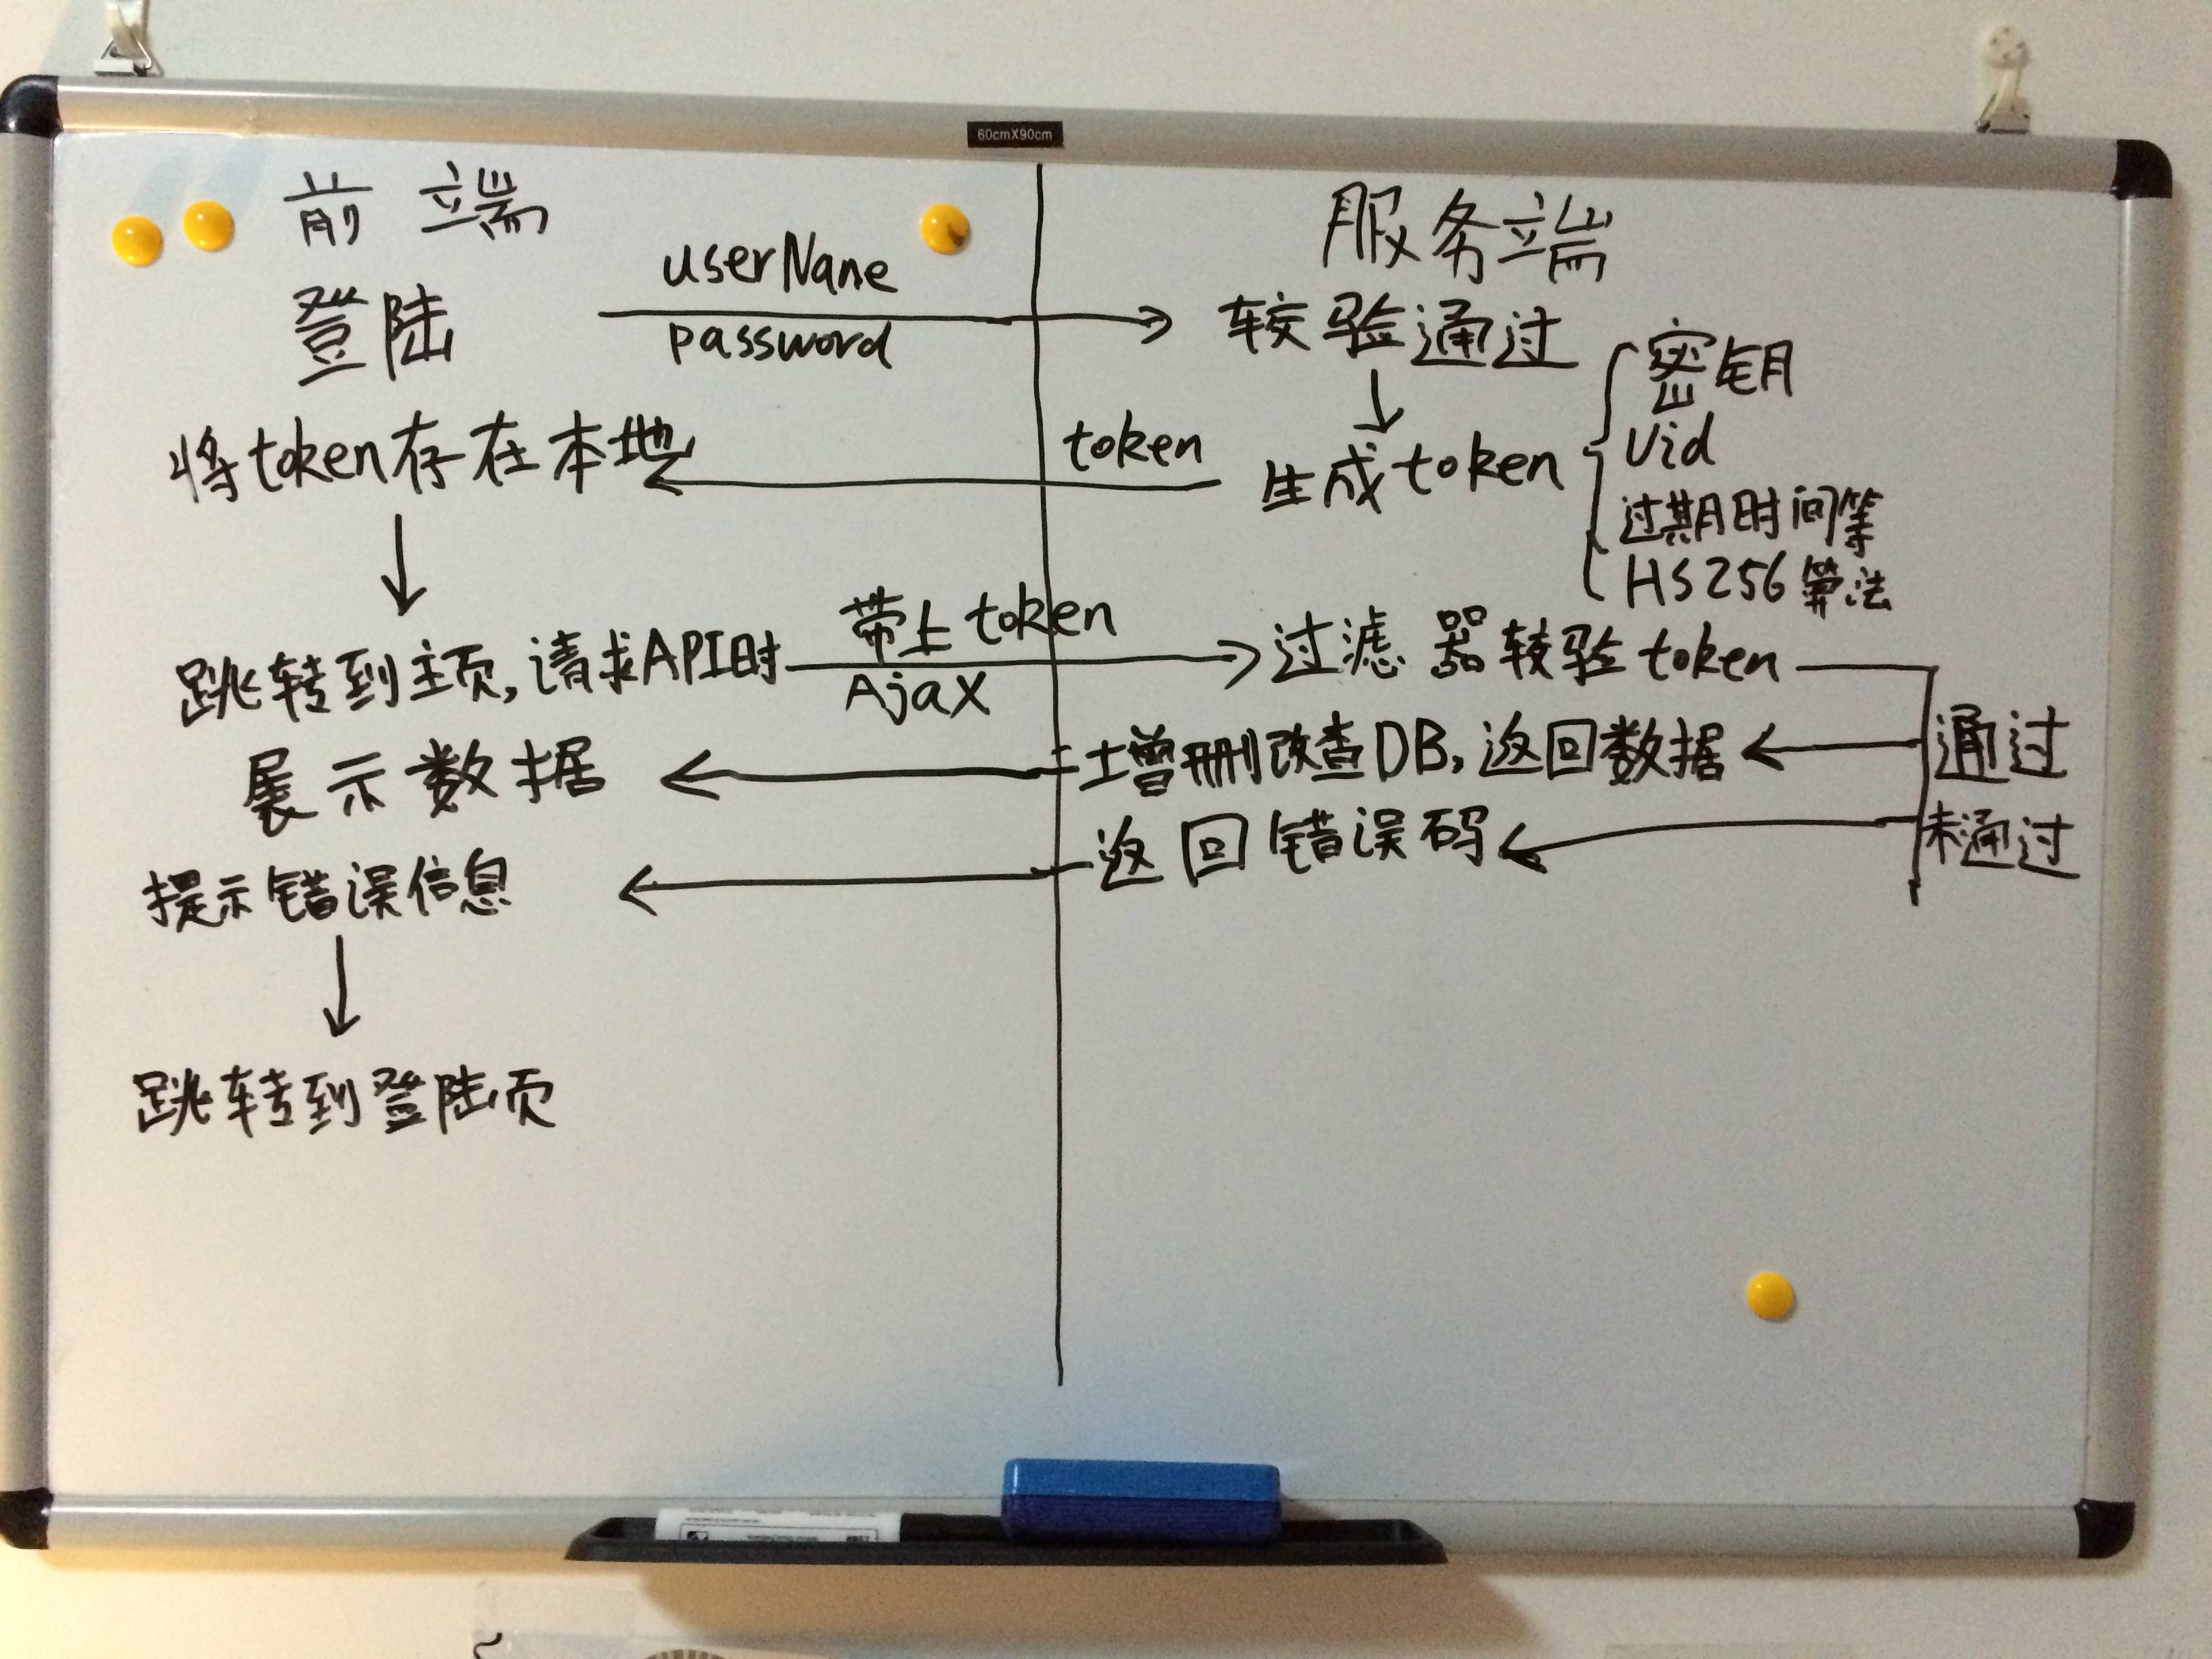 60cmX90cm
前端
服务端
登陆
userName
password
较验通过
密钥
Uid
过期时间等
HS256算法
将token存在本地
token
生成token
跳转到主页,请求API时
带上token
Ajax
过滤器较验token
展示数据
增删改查DB,返回数据
通过
提示错误信息
返回错误码
未通过
跳转到登陆页